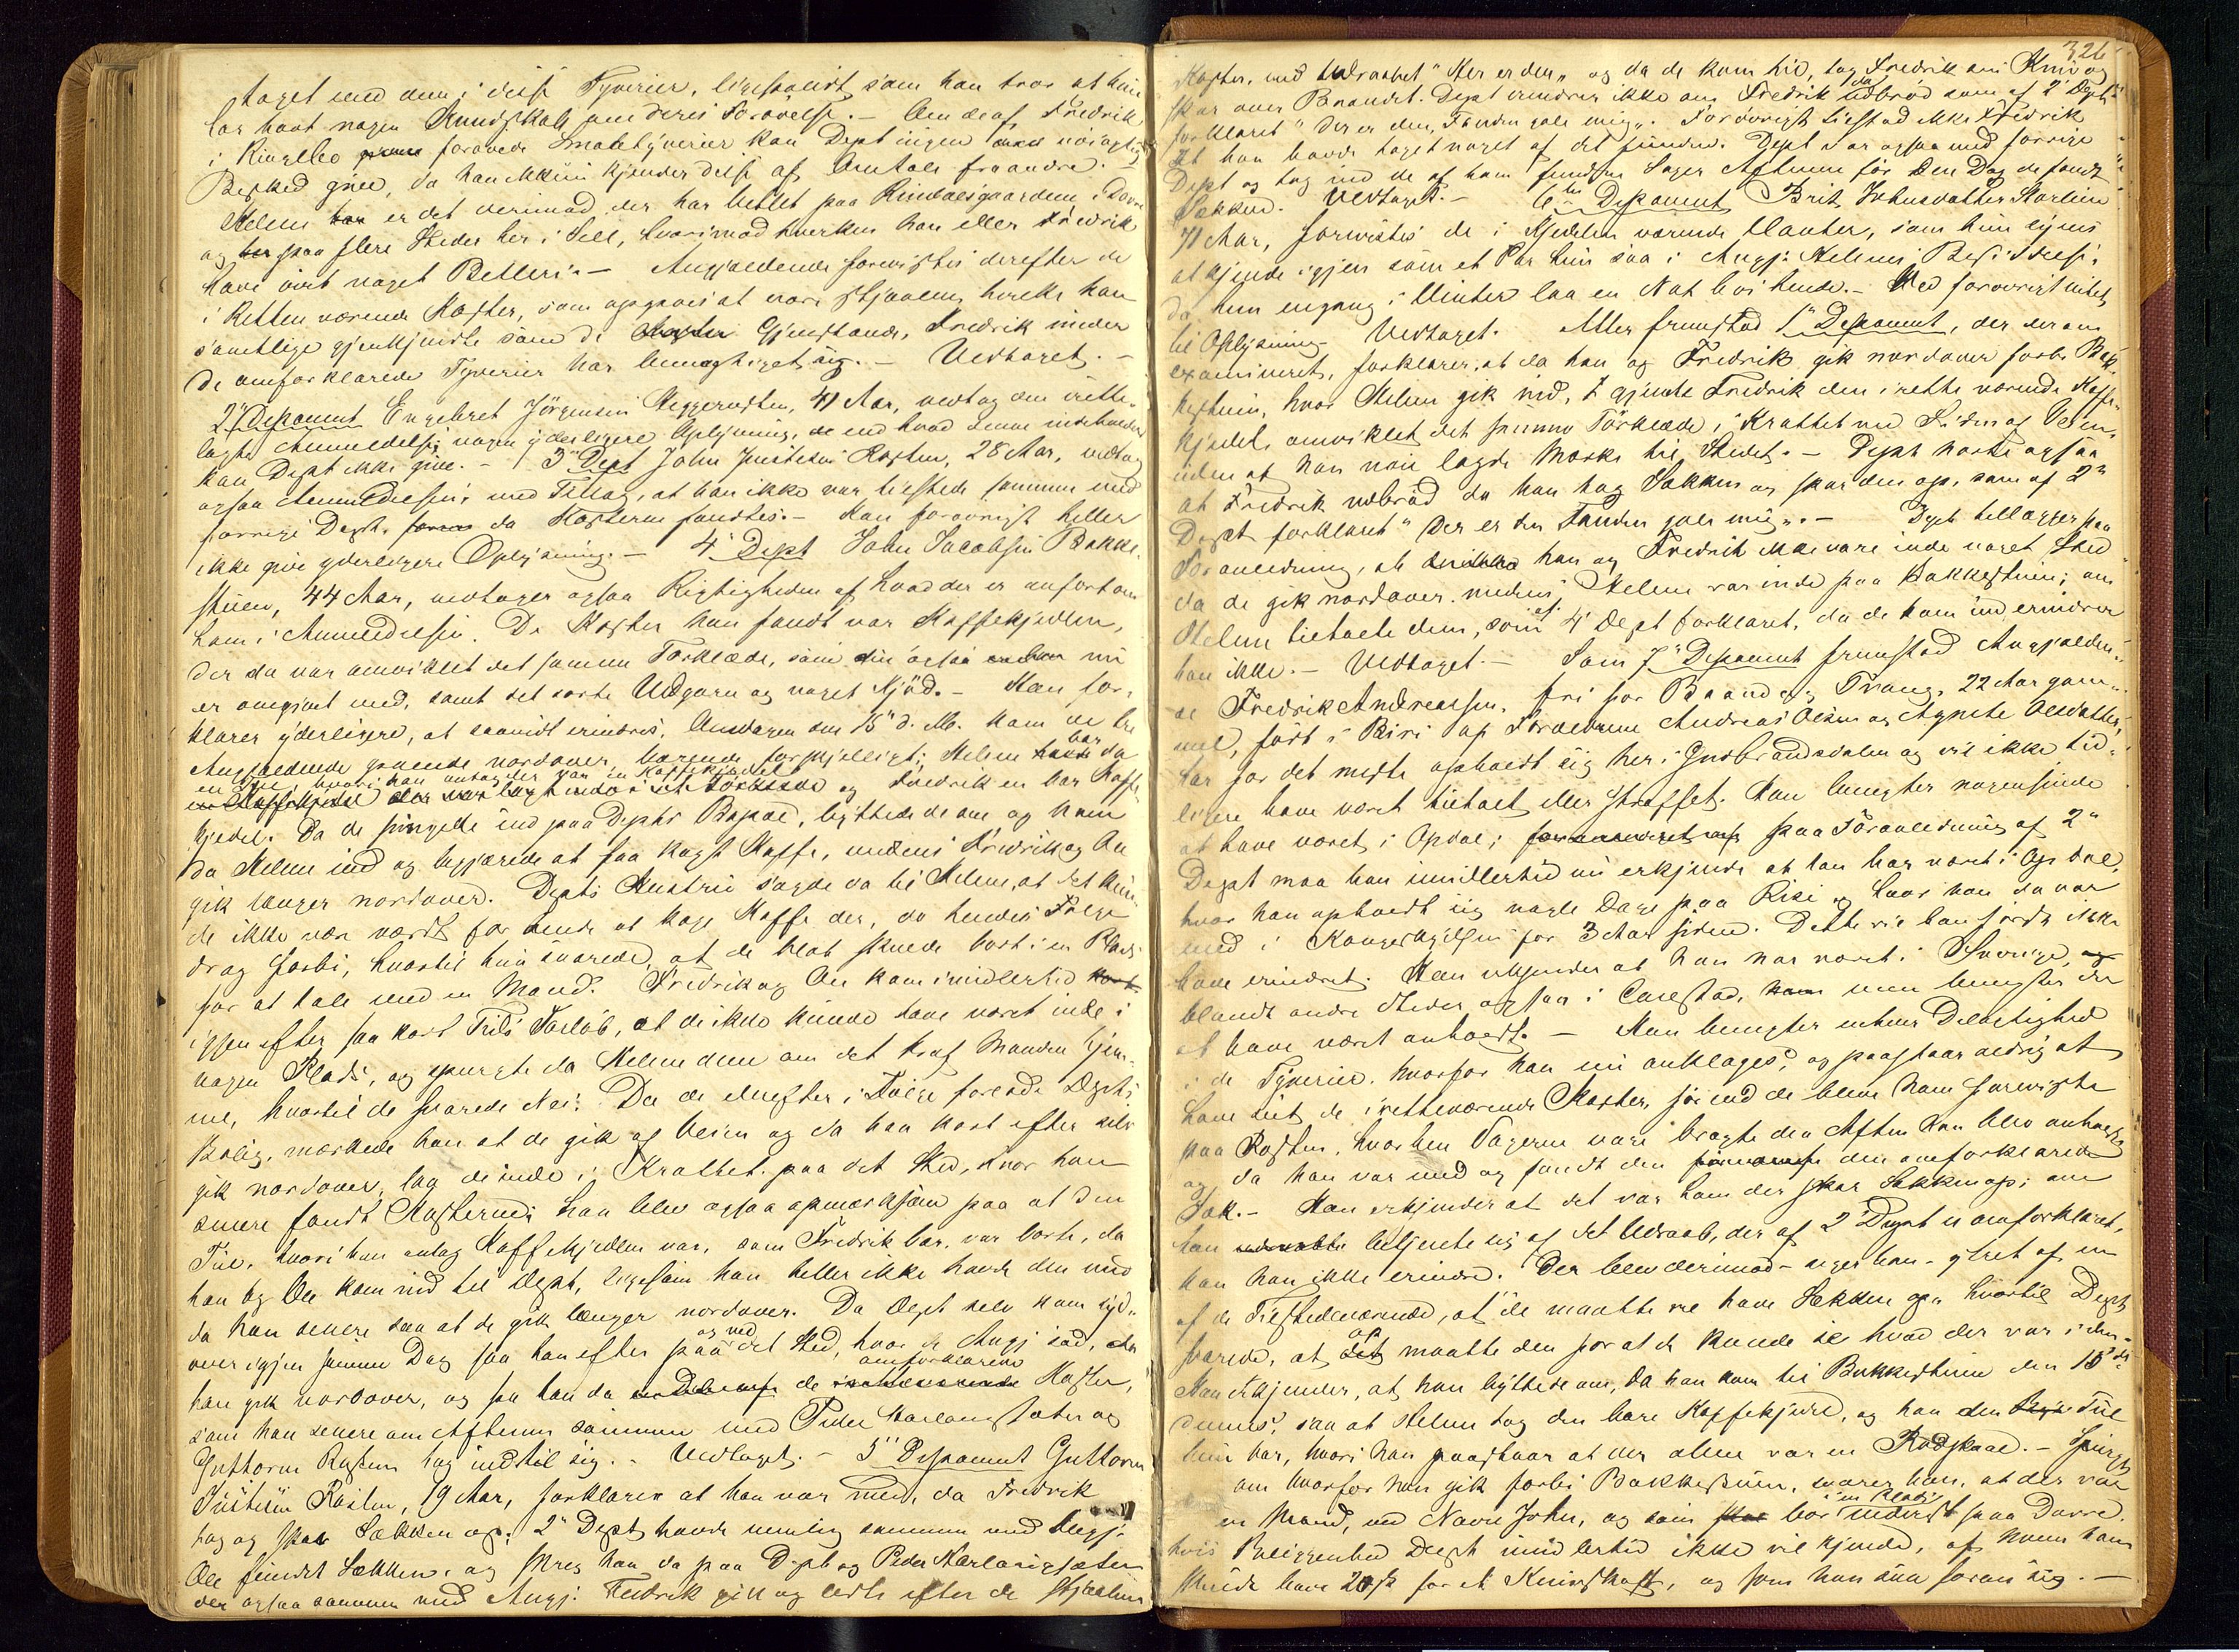 taget med dem i disse Tyverier, ligesaalidt som han tror at hun
har havt nogen Kundskab om deres Forøvelse. – Om de af Fredrik
i Ringebo forøvede Smaatyverier kan Dept ingen nøiagtig
Besked give, da han kun kjender disse af Omtale fra andre. –
Helene er det derimod der har betlet paa Rindalsgaardene i Dovre
og paa flere Steder her i Sell, hvorimod hverken han eller Fredrik
have øvet noget Betleri. – Angjældende forevistes derefter de
i Retten værende Koster, som opgaves at være stjaalne, hvilke han
samtlige gjenkjendte som de Gjenstande, Fredrik under
de omforklarede Tyverier har bemægtiget sig. – Vedtaget. –
2det Deponent Engebret Jørgensen Heggerusten, 41 Aar, vedtog den irette-
lagte Anmeldelse; nogen yderligere Oplysning, end hvad denne indeholder
kan Dept ikke give. – 3de Dept John Justesen Rosten, 28 Aar, vedtog
ogsaa Anmeldelsen med Tillæg, at han ikke var tilstede sammen med
forrige Dept. da Kosterne fandtes. – Kan forøvrigt heller
ikke give yderligere Oplysning. – 4de Dept John Jacobsen Bakke-
stuen, 44 Aar, vedtager ogsaa Rigtigheden af hvad der er anført om
ham i Anmeldelsen. De Koster han fandt var Kaffekjedlen,
der da var omviklet det samme Tørklæde, som den ogsaa nu
er omgivet med, samt det sorte Uldgarn og noget Kjød. – Han for-
klarer yderligere, at saavidt erindres, Onsdagen den 15de d. M. kom de tre
Angjældende gaaende nordover, bærende forskjelligt; Helene bar da
en Tine, hvori han antog der var en Kaffekjedel og Fredrik en bar Kaffe-
kjedel. Da de svingede ind paa Depts Bopæl, byttede de om og kom
da Helene ind og begjærede at faa kogt Kaffe, medens Fredrik og Ole
gik længer nordover. Depts Hustru sagde da til Helene, at det kun-
de ikke være værdt for hende at koge Kaffe der, da hendes Følge
drog forbi, hvortil hun svarede, at de blot skulde bort i en Plads
for at tale med en Mand. Fredrik og Ole kom imidlertid
igjen efter saa kort Tids Forløb, at de ikke kunde have været inde i
nogen Plads, og spurgte da Helene dem om det traf Manden hjem-
me, hvortil de svarede Nei. Da de derefter i Følge forlod Depts
Bolig, mærkede han at de gik af Veien og da han kort efter selv
gik nordover, laa de inde i Krattet paa det Sted, hvor han
senere fandt Kosterne; han blev ogsaa opmærksom paa at den
Tine, hvori han antog Kaffekjedlen var, som Fredrik bar, var borte, da
han og Ole kom ind til Dept, ligesom han heller ikke havde den med
da han senere saa at de gik længer nordover. Da Dept selv kom syd-
over igjen samme Dag saa han efter paa og ved det Sted, hvor de Angj. sad, da
han gik nordover, og saa han da de omforklarede Koster,
som han senere om Aftenen sammen med Peder Harlaugsæter og
Guttorm Rosten tog ind til sig. – Vedtaget. – 5te Deponent Guttorm
Justesen Rosten, 19 Aar, forklarer at han var med, da Fredrik
tog og skar Sækken op; 2det Dept havde nemlig sammen med Angj.
Ole fundet Sækken, og skreg han da paa Dept og Peder Harlaugsæter
der ogsaa sammen med Angj. Fredrik gik og ledte efter de stjaalne
326
Koster, med Udraabet "Her er den" og da de kom hid, tog Fredrik sin Kniv og
skar over Baandet. Dept erindrer ikke om Fredrik da udbrød som af 2det Dept
forklaret "Der er den, Fanden gale mig". Forøvrigt tilstod ikke Fredrik
at han havde taget noget af det fundne. Dept var ogsaa med forrige
Dept og tog ind de af ham fundne Sager Aftenen før den Dag de fandt
Sækken. Vedtaget. – 6te Deponent Brit Johnsdatter Harlien
71 Aar, forevistes de i Kjedelen værende Vanter, som hun synes
at kjende igjen som et Par hun saa i Angj. Helenes Besiddelse,
da hun engang i Vinter laa en Nat hos hende. – Ved forøvrigt intet
til Oplysning. Vedtaget. Atter fremstod 1ste Deponent, der derom
examineret, forklarer, at da han og Fredrik gik nordover forbi Bak-
kestuen, hvor Helene gik ind, gjemte Fredrik den i rette værende Kaffe-
kjedel, omviklet det samme Tørklæde, i Krattet ved Siden af Veien,
uden at han nøie lagde Mærke til Stedet. – Dept hørte ogsaa
at Fredrik udbrød da han tog Sækken og skar den op, som af 2det
Dept forklaret "Der er den Fanden gale mig". – Dept tillægger paa
Foranledning, at han og Fredrik ikke vare inde noget Sted
da de gik nordover, medens Helene var inde paa Bakkestuen; om
Helene tiltalte dem, som af 4de Dept forklaret, da de kom ind erindrer
han ikke. – Vedtaget. – Som 7de Deponent fremstod Angjælden-
de Fredrik Andreassen, fri for Baand og Tvang, 22 Aar gam-
mel, født i Biri af Forældrene Andreas Olsen og Agnete Olsdatter,
har for det meste opholdt sig her i Gudbrandsdalen og vil ikke tid-
ligere have været tiltalt eller straffet. Han benegter nogensinde
at have været i Opdal; paa Foranledning af 2det
Dept maa han imidlertid nu erkjende at han har været i Opdal,
hvor han opholdt sig nogle Dage paa Rise og hvor han da var
med i Kongeskydsen for 3 Aar siden. Dette vil han først ikke
have erindret. Han erkjender at han har været i Sverige,
blandt andre Steder ogsaa i Carlstad, men benegter der
at have været anholdt. – Han benegter enhver Delagtighed
i de Tyverier, hvorfor han nu anklages, og paastaar aldrig at
have seet de iretteværende Koster, før end de bleve ham foreviste
paa Rosten, hvorhen Sagerne vare bragte den Aften han blev anholdt
og da han var med og fandt den omforklarede
Sæk. – Han erkjender at det var ham der skar Sækken op; om
han betjente sig af det Udraab, der af 2det Dept er omforklaret,
kan han ikke erindre. Der blev derimod – siger han – ytret af en
af de Tilstedeværende, at "de maatte vel have Sækken op" hvortil Dept
svarede, at de maatte den for at de kunde se hvad der var i den.
Han erkjender, at han byttede om, da han kom til Bakkestuen den 15de
dennes, saa at Helene tog den bare Kaffekjedel, og han den Tine
hun bar, hvori han paastaar at der alene var en Rødskaal. – Spurgt
om hvorfor han gik forbi Bakkestuen, svarer han, at der var
en Mand, ved Navn John, og som bor i en Plads inderst paa Dovre,
hvis Beliggenhed Dept imidlertid ikke vil kjende, af hvem han
skulde have 20 ß for et Knivskaft, og som han saa foran sig. –